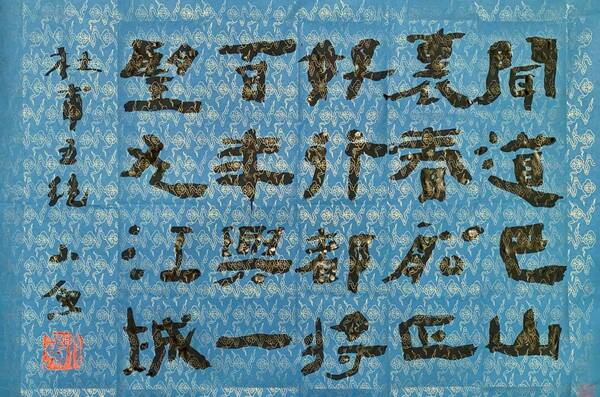 聞道巴山
裏春船正
好行都将
百年興一
望九江城
杜甫五絶 小魚